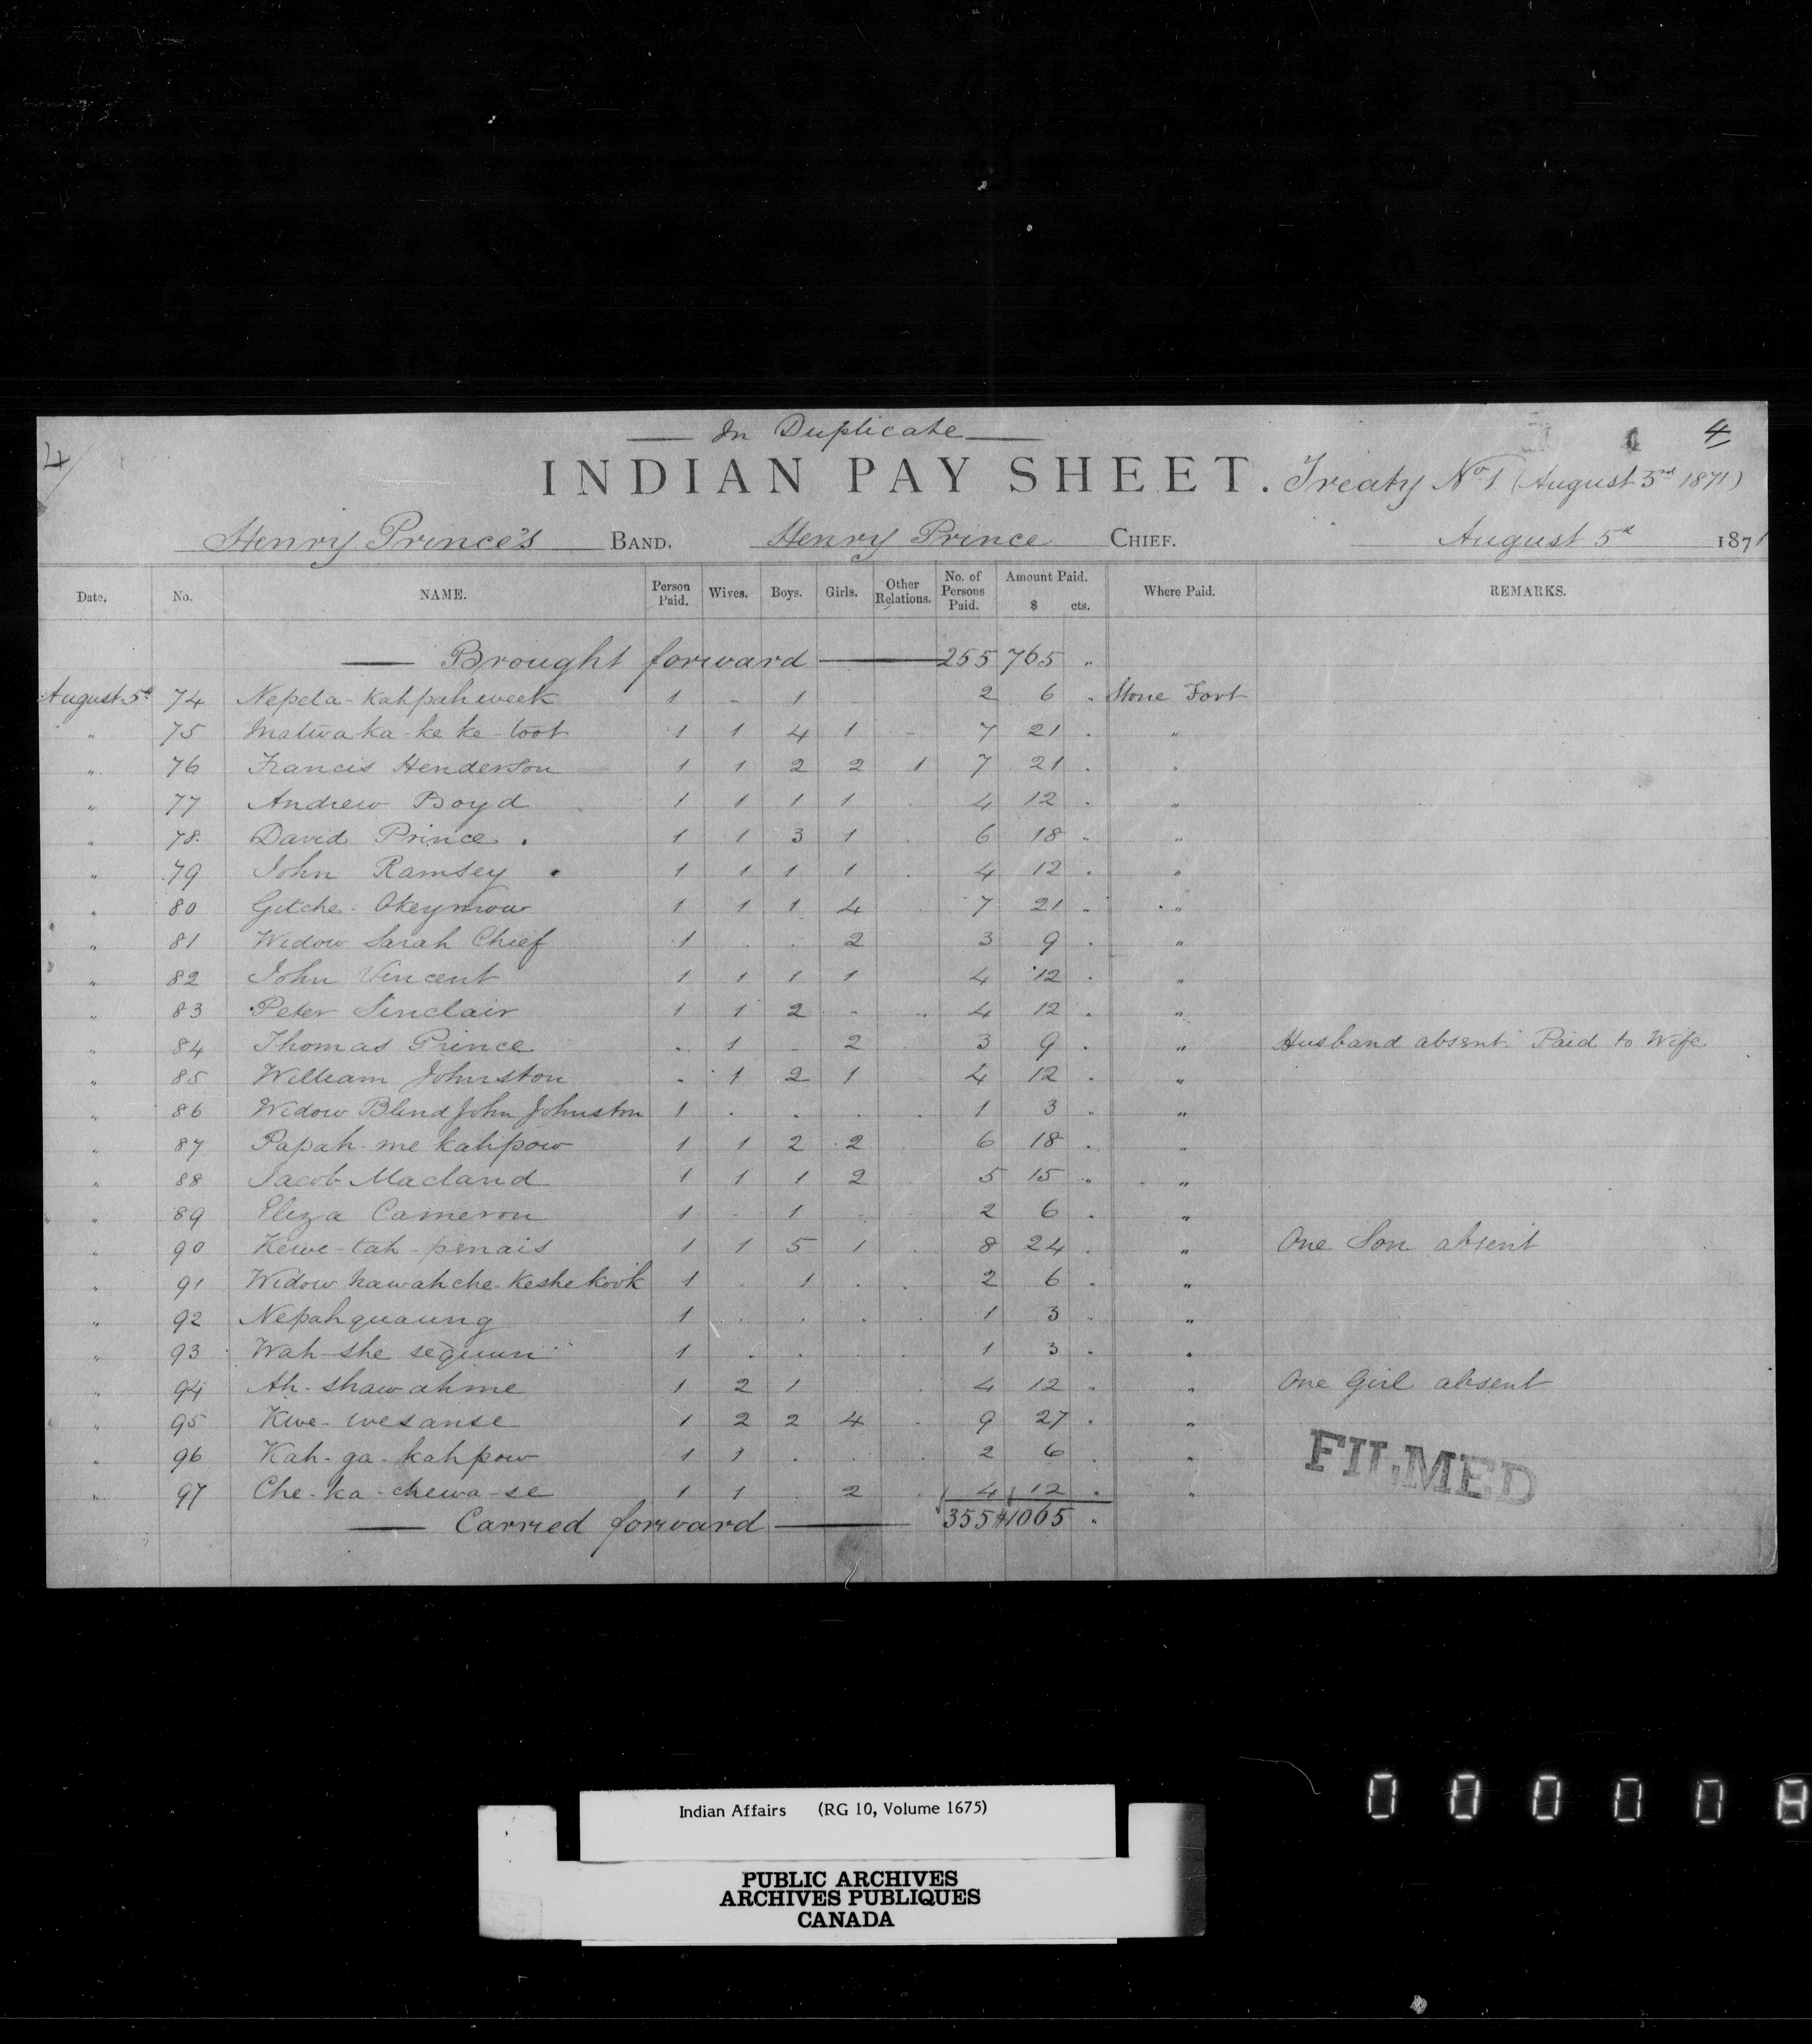 In Duplicate
4 4
INDIAN PAY SHEET. Treaty No 1 (August 3rd 1871)
Henry Prince's BAND. Henry Prince CHIEF. August 5th 1871
Date. No. NAME. Person Paid. Wives. Boys. Girls. Other Relations. No. of Persons Paid. Amount Paid. $ cts. Where Paid. REMARKS.
Brought forward 255 765 "
August 5th 74 Nepeta-kahpahweek 1 - 1 2 6 " Stone Fort
" 75 Matwaka-ke ke-toot 1 1 4 1 - 7 21 . "
" 76 Francis Henderson 1 1 2 2 1 7 21 . "
" 77 Andrew Boyd 1 1 1 1 . 4 12 . "
" 78. David Prince . 1 1 3 1 . 6 18 " "
" 79 John Ramsey . 1 1 1 1 . 4 12 . "
" 80 Getche-Okeymow 1 1 1 4 7 21 . "
" 81 Widow Sarah Chief 1 . . 2 3 9 . "
" 82 John Vincent 1 1 1 1 4 12 . "
" 83 Peter Sinclair 1 1 2 - " 4 12 . "
" 84 Thomas Prince " 1 2 3 9 . " Husband absent. Paid to Wife
" 85 William Johnston " 1 2 1 4 12 . "
" 86 Widow Blind John Johnston 1 . . . . 1 3 " "
" 87 Papah-me kahpow 1 1 2 2 6 18 . "
" 88 Jacob Macland 1 1 1 2 5 15 " "
" 89 Eliza Cameron 1 - 1 - 2 6 . "
" 90 Kewe-tah-penais 1 1 5 1 . 8 24 . " One Son absent
" 91 Widow Nawahche-Keshekook 1 . 1 . . 2 6 . "
" 92 Nepahquaung 1 . . . . 1 3 . "
" 93 Wah-she sequun 1 . . . . 1 3 . "
" 94 Ah-shawahme 1 2 1 . 4 12 . " One Girl absent
" 95 Kwe-wesanse 1 2 2 4 . 9 27 . "
" 96 Kah-ga-kahpow 1 1 . . . 2 6 . "
" 97 Che-ka-chewa-se 1 1 . 2 . 4 12 . "
Carried forward 355 $1065 .
FILMED
Indian Affairs (RG 10, Volume 1675)
PUBLIC ARCHIVES
ARCHIVES PUBLIQUES
CANADA
0 0 0 0 0